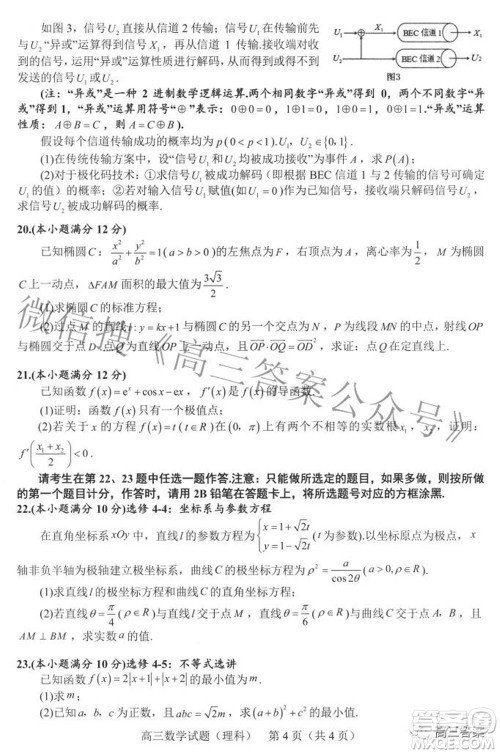 如图 3，信号U₂直接从信道 2 传输；信号U₁在传输前先
与U₂“异或”运算得到信号X₁，再从信道 1 传输.接收端对收
到的信号，运用“异或”运算性质进行解码，从而得到或得不到
发送的信号U₁或U₂.
U₁ BEC 信道 1 X₁
U₂ BEC 信道 2 X₂
图3
(注：“异或”是一种 2 进制数学逻辑运算.两个相同数字“异或”得到 0，两个不同数字“异
或”得到 1，“异或”运算用符号“⊕”表示：0⊕0=0，1⊕1=0，1⊕0=1，0⊕1=1.“异或”运算
性质：A⊕B=C，则A=C⊕B).
假设每个信道传输成功的概率均为 p(0<p<1).U₁，U₂∈{0,1}.
(1)在传统传输方案中，设“信号U₁和U₂均被成功接收”为事件A，求P(A)；
(2)对于极化码技术：①求信号U₁被成功解码（即根据 BEC 信道 1 与 2 传输的信号可确定
U₁的值）的概率；②若对输入信号U₁赋值(如U₁=0)作为已知信号，接收端只解码信号U₂，
求信号U₂被成功解码的概率.
20.(本小题满分 12 分)
已知椭圆C：x²/a²+y²/b²=1(a>b>0)的左焦点为F，右顶点为A，离心率为1/2，M为椭圆
C上一动点，△FAM面积的最大值为3√3/2.
(1)求椭圆C的标准方程；
(2)过点M的直线l:y=kx+1与椭圆C的另一个交点为N，P为线段MN的中点，射线OP
与椭圆交于点D.点Q为直线OP上一动点，且OP·OQ=OD²，求证：点Q在定直线上.
21.(本小题满分 12 分)
已知函数f(x)=eˣ+cosx-ex，f′(x)是f(x)的导函数.
(1)证明：函数f(x)只有一个极值点；
(2)若关于x的方程f(x)=t(t∈R)在(0,π)上有两个不相等的实数根x₁，x₂，证明：
f′((x₁+x₂)/2)<0.
请考生在第 22、23 题中任选一题作答.注意：只能做所选定的题目，如果多做，则按所做
的第一个题目计分，作答时，请用 2B 铅笔在答题卡上，将所选题号对应的方框涂黑.
22.(本小题满分 10 分)选修 4-4：坐标系与参数方程
在直角坐标系xOy中，直线l的参数方程为{x=1+√2t y=1-√2t(t为参数).以坐标原点为极点，x
轴非负半轴为极轴建立极坐标系，曲线C的极坐标方程为ρ²=a/cos2θ(a>0,ρ∈R).
(1)求直线l的极坐标方程和曲线C的直角坐标方程；
(2)若直线θ=π/4(ρ∈R)与直线l交于点M，直线θ=π/6(ρ∈R)与曲线C交于点A，B，且
AM⊥BM，求实数a的值.
23.(本小题满分 10 分)选修 4-5：不等式选讲
已知函数f(x)=2|x+1|+|x-2|的最小值为m.
(1)求m；
(2)已知a，b，c为正数，且abc=m，求(a+b)²+c²的最小值.
高三数学试题（理科） 第 4 页（共 4 页）
微信搜《高三答案公众号》
高三答案